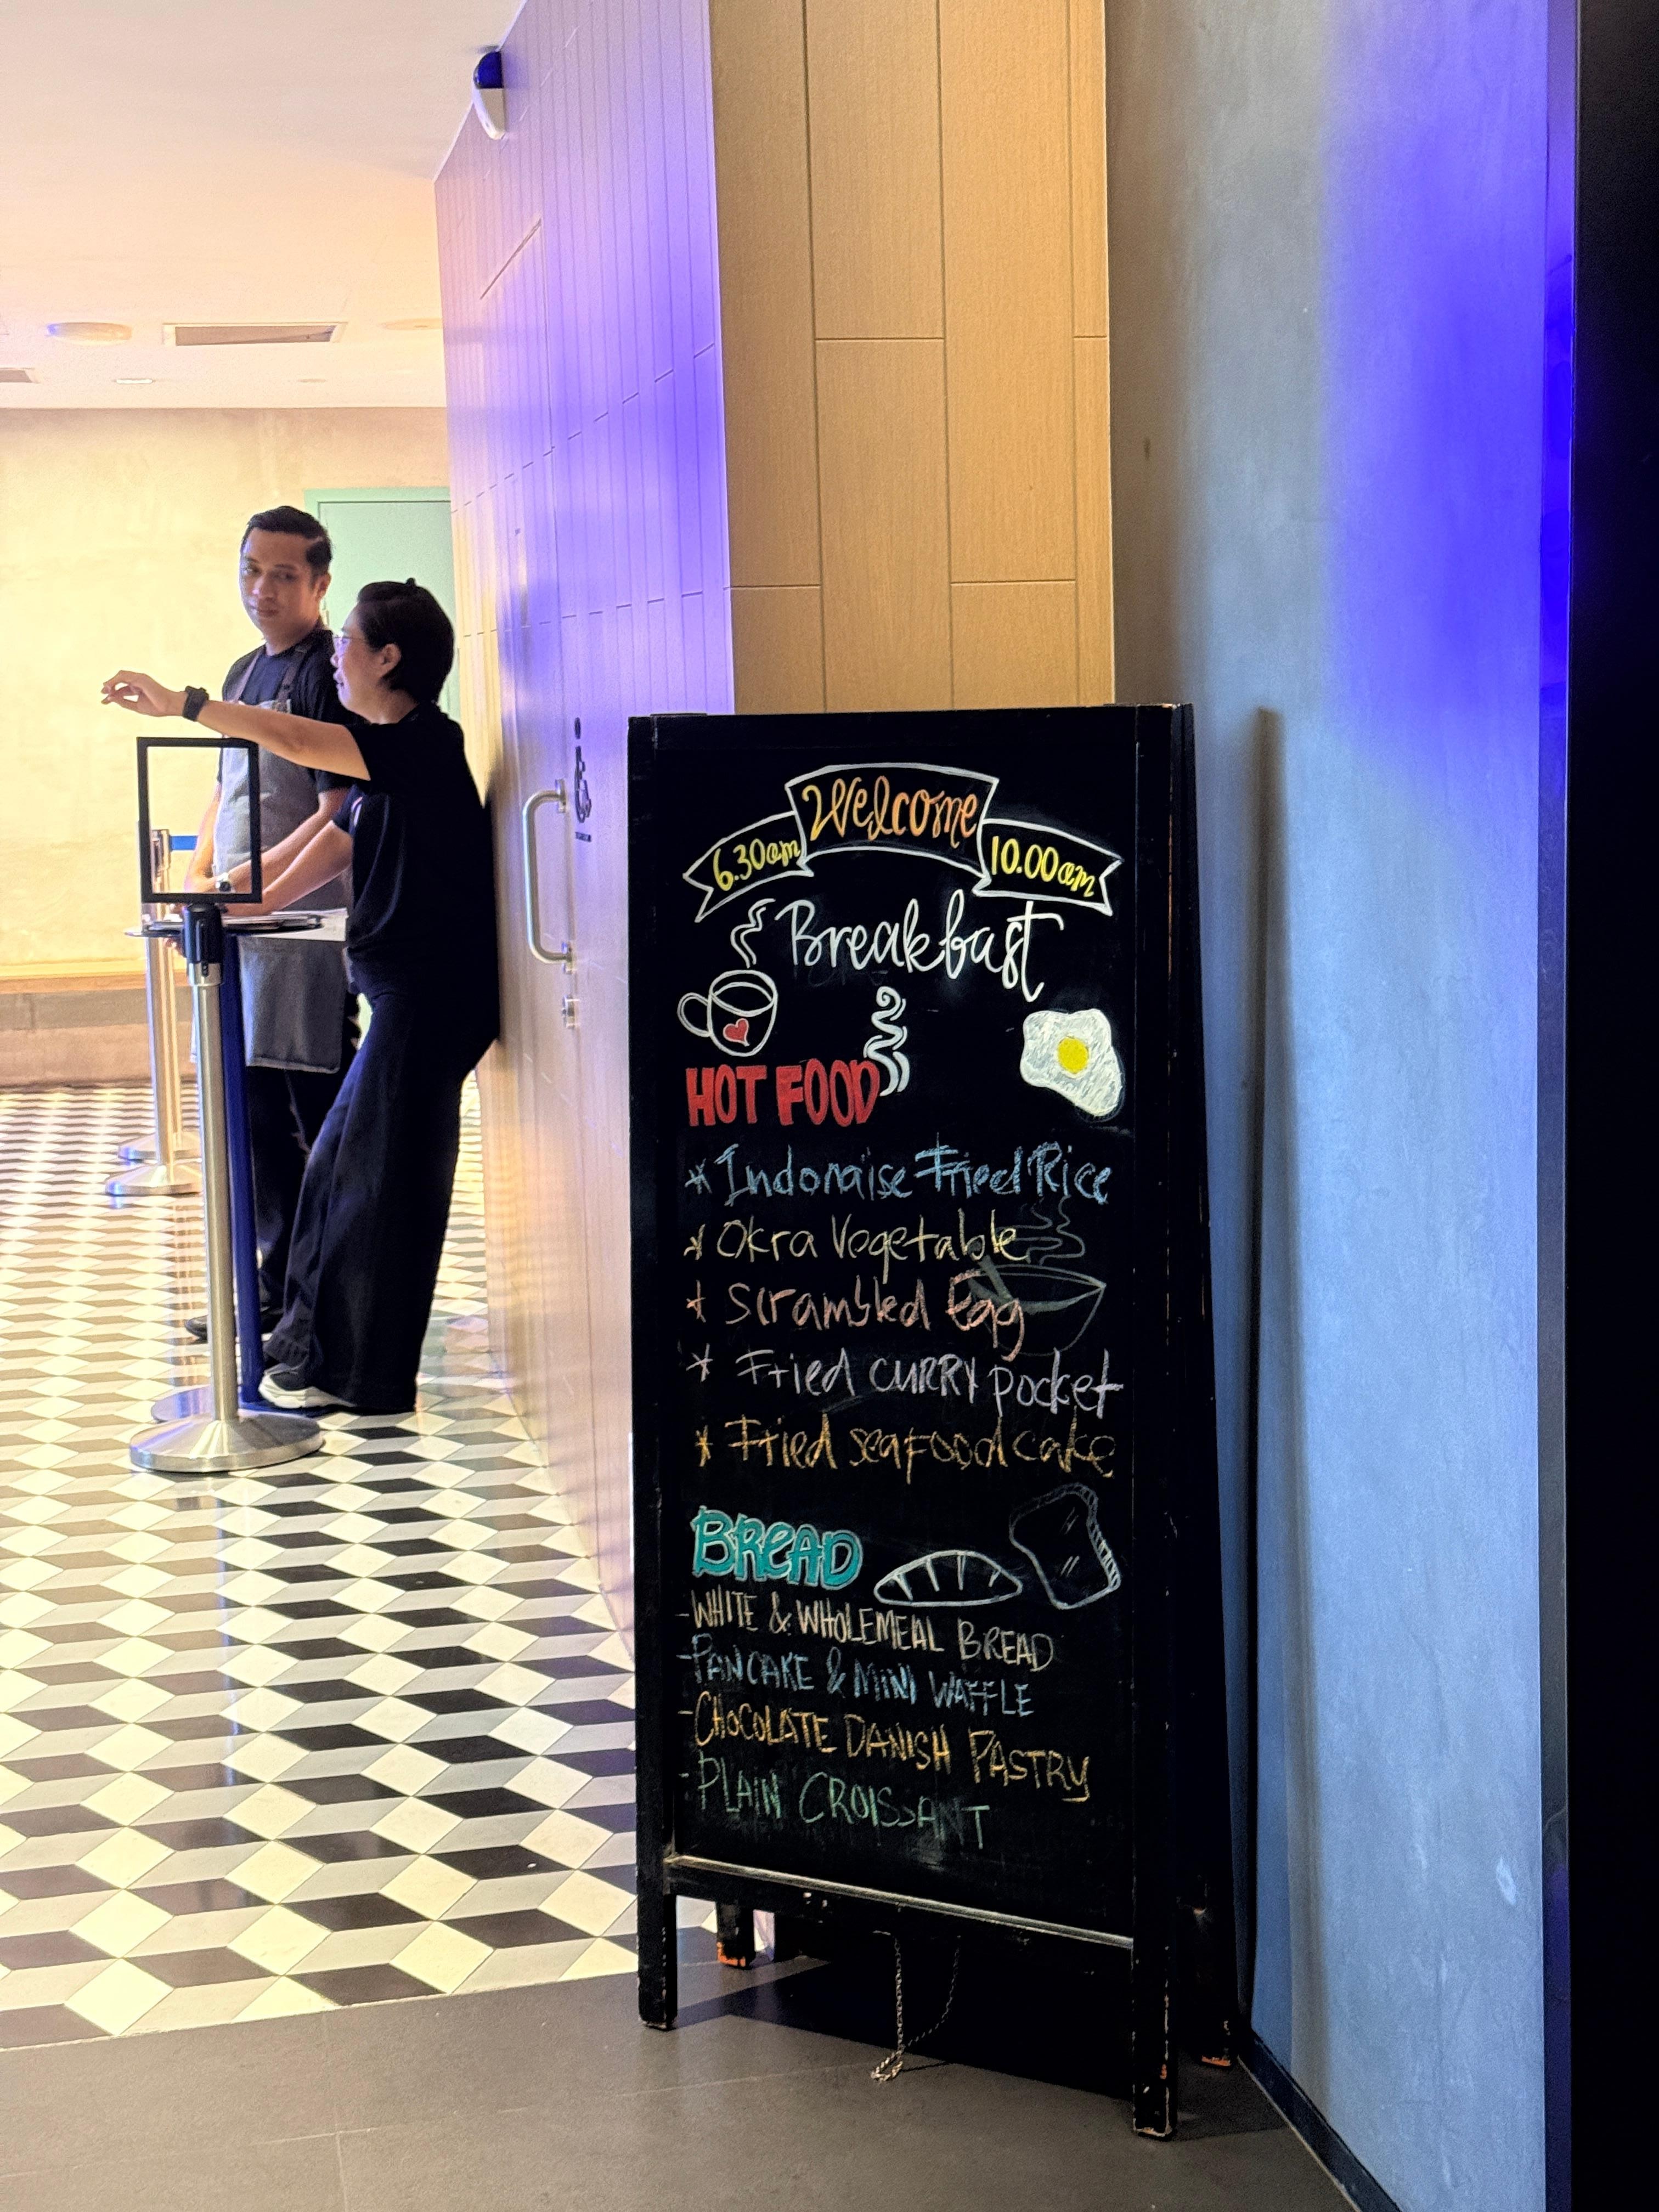 Welcome
6.30am
10.00am
Breakfast
HOT FOOD
* Indonaise Fried Rice
* Okra Vegetable
* Scrambled Egg
* Fried CURRY pocket
* Fried seafood cake
BREAD
- WHITE & WHOLEMEAL BREAD
- PANCAKE & MINI WAFFLE
- CHOCOLATE DANISH PASTRY
- PLAIN CROISSANT